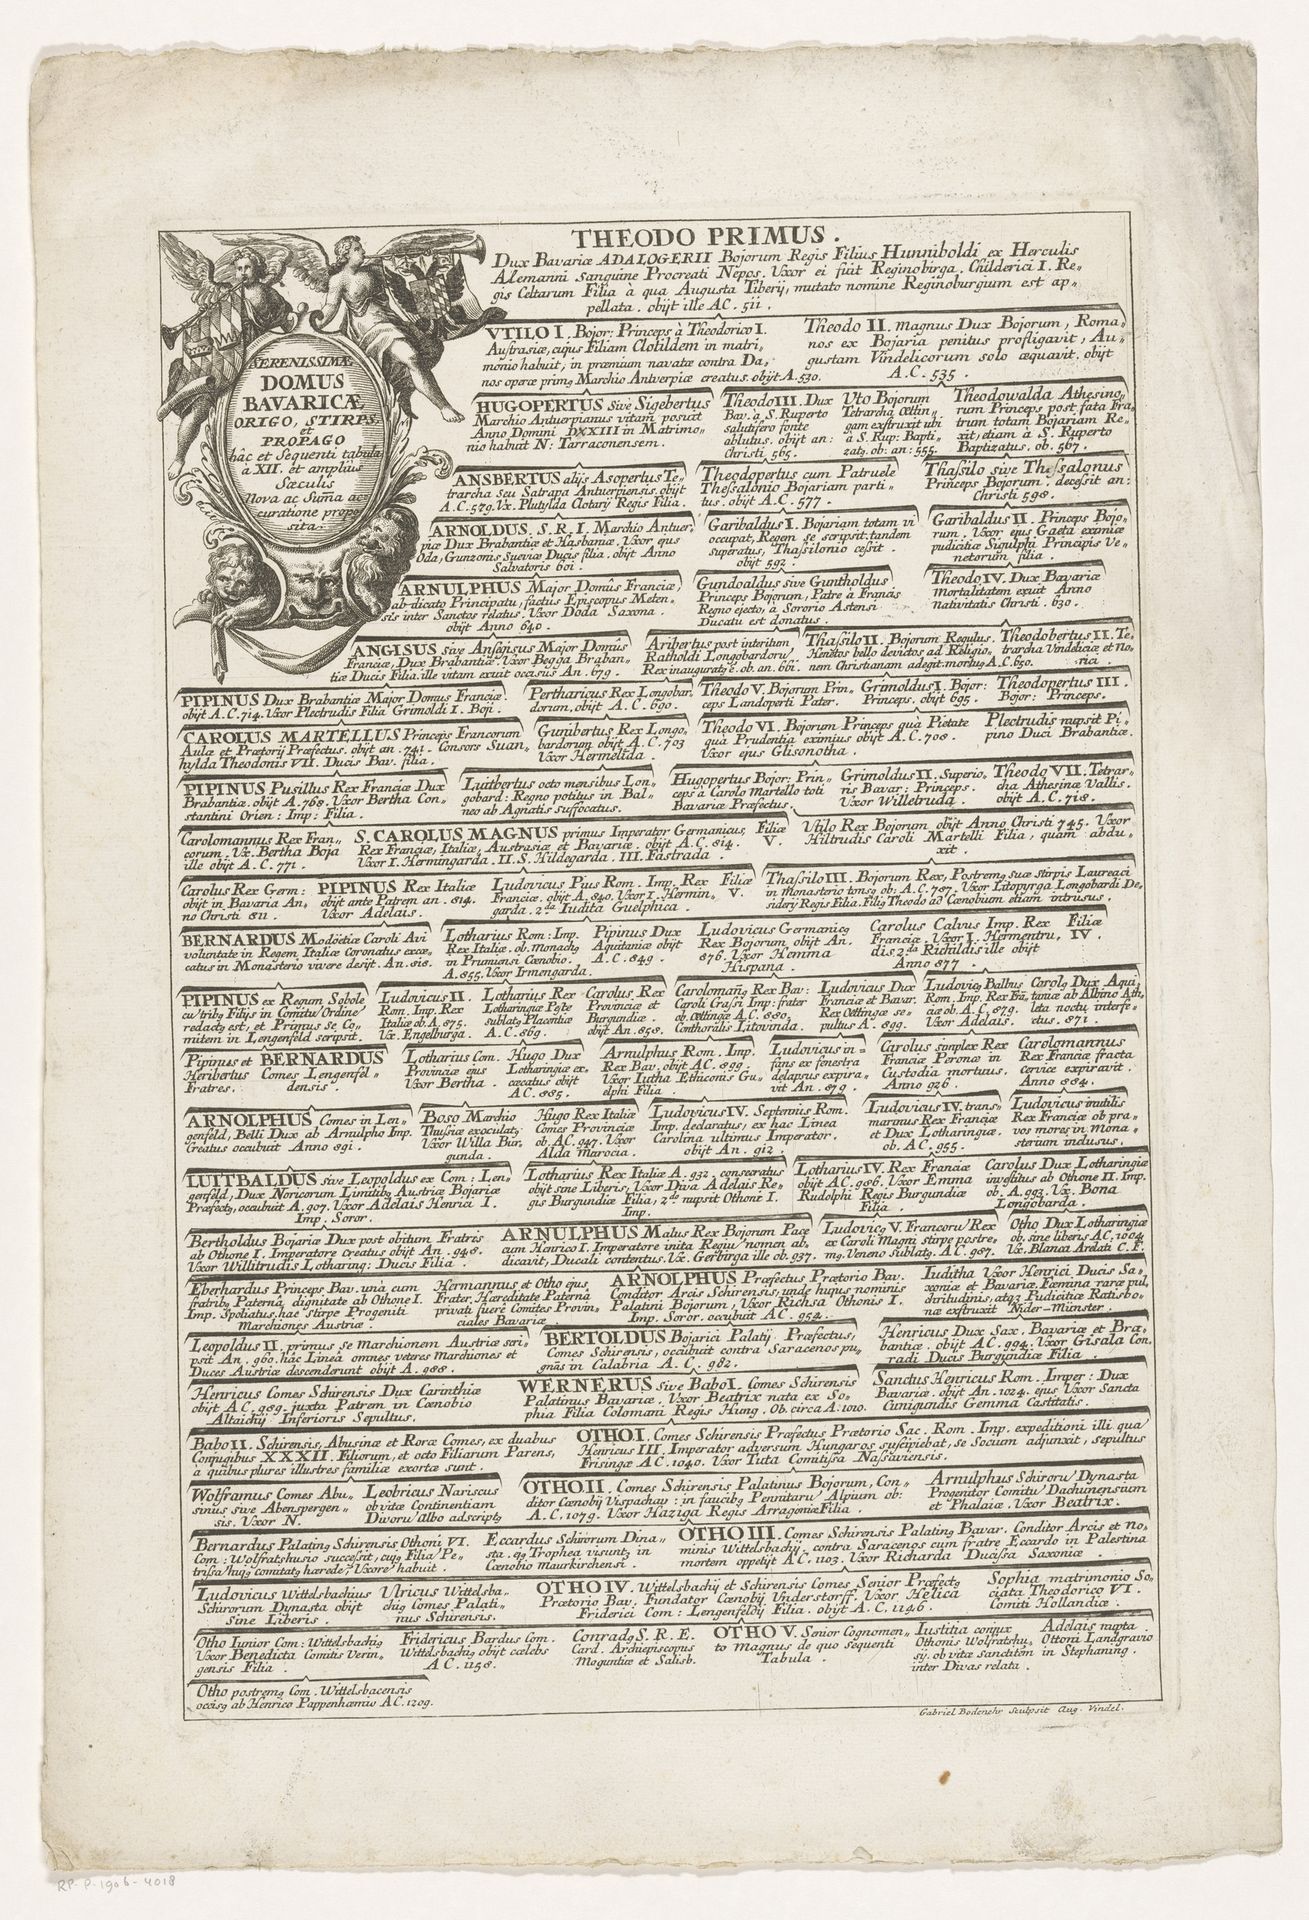 THEODO PRIMUS.
Dux Bavariæ ADALOGERII Bojorum Regis Filius Hunniboldi ex Herculis
Alemanni Sanguine Procreati Nepos. Vxor ei fuit Reginobirga. Childerici I. Re„
gis Celtarum Filia à qua Augusta Tiberij, mutato nomine Reginoburgium est ap„
pellata. obijt ille A C. 511.
SERENISSIMÆ
DOMUS
BAVARICÆ,
ORIGO, STIRPS.
et
PROPAGO
hâc et Sequenti tabula
à XII. et ampliùs
Sæculis
Nova ac Suma ac„
curatione propo„
sita.
VTILO I. Bojor: Princeps à Theodorico I.
Austrasiæ, cujus Filiam Clotildem in matri„
monio habuit, in præmium navatæ contra Da„
nos operæ primq Marchio Antverpiæ creatus. obijt A. 530.
Theodo II. Magnus Dux Bojorum, Roma„
nos ex Bojaria penitus profligavit, Au„
gustam Vindelicorum solo æquavit. obijt
A. C. 535.
HUGOPERTUS sivè Sigebertus
Marchio Antuerpianus vitam posuit
Anno Domini DXXIII in Matrimo„
nio habuit N: Tarraconensem.
Theodo III. Dux
Bav. à S. Ruperto
salutifero fonte
ablutus. obijt an:
Christi 565.
Vto Bojorum
Tetrarcha Œttin„
gam exstruxit ubi
à S. Rup: Bapti„
zatq. ob. an: 555.
Theodowalda Athesino„
rum Princeps post fata Fra„
trum totam Bojariam Re„
xit, etiam à S. Ruperto
Baptizatus. ob. 567.
ANSBERTUS alijs Asopertus Te„
trarcha seu Satrapa Antuerpiensis. obijt
A. C. 579. Vx. Plutylda Clotarij Regis Filia.
Theodopertus cum Patruele
Thessalonio Bojariam parti„
tus. obijt A. C. 577.
Thassilo sive Thessalonus
Princeps Bojorum. decessit an:
Christi 598.
ARNOLDUS. S. R. I. Marchio Antuer„
piæ Dux Brabantiæ et Hasbaniæ. Vxor ejus
Oda, Gunzonis Sueviæ Ducis filia. obijt Anno
Salvatoris 601.
Garibaldus I. Bojariam totam vi
occupat, Regem se scripsit. tandem
superatus, Thassilonio cessit.
obijt 592.
Garibaldus II. Princeps Bojo„
rum. Vxor ejus Gaeta eximiæ
pudicitiæ Sigulphi Principis Ve„
netorum filia.
ARNULPHUS Major Domûs Franciæ,
ab-dicato Principatu, factus Episcopus Meten„
sis inter Sanctos relatus. Vxor Doda Saxona.
obijt Anno 640.
Gundoaldus sive Guntholdus
Princeps Bojorum, Patre à Francis
Regno ejecto, à Sororio Astensi
Ducatu est donatus.
Theodo IV. Dux Bavariæ
Mortalitatem exuit Anno
Nativitatis Christi. 630.
ANGISUS sive Ansegisus Major Domûs
Franciæ, Dux Brabantiæ. Vxor Begga Braban„
tiæ Ducis Filia. ille vitam exuit occisus An. 679.
Aribertus post interitum
Ratholdi Longobardoru
Rex inauguratq e. ob. an. 661.
Thassilo II. Bojorum Regulus.
Henetos bello devictos ad Religio„
nem Christianam adegit. mortuq A. C. 650.
Theodobertus II. Te„
trarcha Vendeliciæ et No„
rici.
PIPINUS Dux Brabantiæ Major Domus Franciæ.
obijt A. C. 714. Vxor Plectrudis Filia Grimoldi I. Boji.
Pertharicus Rex Longobar„
dorum. obijt A. C. 690.
Theodo V. Bojorum Prin„
ceps Landoperti Pater.
Grimoldus I. Bojor:
Princeps. obijt 695.
Theodopertus III.
Bojor: Princeps.
CAROLUS MARTELLUS Princeps Francorum
Aulæ et Prætorij Præfectus. obijt an. 741. Consors Suan„
hylda Theodonis VII. Ducis Bav. filia.
Gunibertus Rex Longo„
bardorum obijt A. C. 703
Vxor Hermelida.
Theodo VI. Bojorum Princeps quà Pietate
quà Prudentia eximius obijt A. C. 708.
Vxor ejus Glisonotha.
Plectrudis nupsit Pi„
pino Duci Brabantiæ.
PIPINUS Pusillus Rex Franciæ Dux
Brabantiæ. obijt A. 768. Vxor Bertha Con„
stantini Orien: Imp: Filia.
Luitbertus octo mensibus Lon„
gobard: Regno potitus in Bal„
neo ab Agnatis suffocatus.
Hugopertus Bojor: Prin„
ceps à Carolo Martello toti
Bavariæ Præfectus.
Grimoldus II. Superio„
ris Bavar: Princeps.
Vxor Willetruda.
Theodo VII. Tetrar„
cha Athesinæ Vallis.
obijt A. C. 718.
Carolomannus Rex Fran„
corum. Vx. Bertha Boja
ille obijt A C. 771.
S. CAROLUS MAGNUS primus Imperator Germanicus,
Rex Franciæ, Italiæ, Austrasiæ et Bavariæ. obijt A. C. 814.
Vxor I. Hermingarda. II. S. Hildegarda. III. Fastrada.
Filiæ
V.
Vtilo Rex Bojorum obijt Anno Christi 745. Vxor
Hiltrudis Caroli Martelli Filia, quam abdu„
xit.
Carolus Rex Germ:
obijt in Bavaria An„
no Christi 811.
PIPINUS Rex Italiæ
obijt ante Patrem an. 814.
Vxor Adelais.
Ludovicus Pius Rom. Imp. Rex
Franciæ. obijt A. 840. Vxor I. Hermin„
garda. 2da Iudita Guelphica.
Filiæ
V.
Thassilo III. Bojorum Rex, Postremq suæ stirpis Laureaci
in Monasterio tonsq ob: A. C. 787. Vxor Litopyrga Longobardi De„
siderij Regis Filia. Filiq Theodo ad Cænobium etiam intrusus.
BERNARDUS Modöetiæ Caroli Avi
voluntate in Regem Italiæ Coronatus excæ„
catus in Monasterio vivere desijt. An. 818.
Lotharius Rom: Imp.
Rex Italiæ. ob. Monachq
in Prumiensi Cœnobio.
A. 855. Vxor Irmengarda.
Pipinus Dux
Aquitaniæ obijt
A. C. 849.
Ludovicus Germanicq
Rex Bojorum. obijt An.
876. Vxor Hemma
Hispana.
Carolus Calvus Imp. Rex
Franciæ. Vxor I. Hermentru„
dis 2da Richildis ille obijt
Anno 877.
Filiæ
IV.
PIPINUS ex Regum Sobole
cu tribq Filijs in Comitu Ordine
redactq est, et Primus Se Co„
mitem in Lengenfeld scripsit.
Ludovicus II.
Rom. Imp. Rex
Italiæ ob. A. 875.
Vx. Engelburga.
Lotharius Rex
Lotharingiæ Peste
sublatq Placentiæ
A. C. 869.
Carolus Rex
Provinciæ et
Burgundiæ.
obijt An. 858.
Carolomañq Rex Bav:
Caroli Crassi Imp: frater
ob. Œttingæ A. C. 880.
Conthoralis Litovinda.
Ludovicus Dux
Franciæ et Bavar.
Rex Œttingæ se„
pultus A. 899.
Ludovicq Balbus
Rom. Imp. Rex Frã„
ciæ ob. A. C. 879.
Vxor Adelais.
Carolq Dux Aqui„
taniæ ab Albino Ath„
leta noctu interfe„
ctus. 871.
Pipinus et
Heribertus
Fratres.
BERNARDUS
Comes Lengenfel„
densis.
Lotharius Com.
Provinciæ ejus
Vxor Bertha.
Hugo Dux
Lotharingiæ ex„
cæcatus obijt
A C. 885.
Arnulphus Rom. Imp.
Rex Bav. obijt A C. 899.
Vxor Iutha Ethiconis Gu„
elphi Filia.
Ludovicus in=
fans ex fenestra
delapsus expira„
vit An. 879.
Carolus simplex Rex
Franciæ Peronæ in
Custodia mortuus.
Anno 926.
Carolomannus
Rex Franciæ fracta
cervice expiravit.
Anno 884.
ARNOLPHUS Comes in Len„
genfeld, Belli Dux ab Arnulpho Imp.
Creatus occubuit Anno 891.
Boso Marchio
Thusiæ exoculatq
Vxor Willa Bur„
gunda.
Hugo Rex Italiæ
Comes Provinciæ
ob. A C. 947. Vxor
Alda Marocia.
Ludovicus IV. Septennis Rom.
Imp. declaratus, ex hac Linea
Carolina ultimus Imperator.
obijt An. 912.
Ludovicus IV. trans„
marinus Rex Franciæ
et Dux Lotharingiæ.
ob. A C. 955.
Ludovicus inutilis
Rex Franciæ ob pra„
vos mores in Mona„
sterium inclusus.
LUITBALDUS sive Leopoldus ex Com: Len„
genfeld, Dux Noricorum Limitibq Austriæ Bojariæ
Præfectq, occubuit A. 907. Vxor Adelais Henrici I.
Imp. Soror.
Lotharius Rex Italiæ A. 932. consecratus
obijt sine Liberis; Vxor Diva Adelais Re„
gis Burgundiæ Filia, 2do nupsit Othoni I.
Imp.
Lotharius IV. Rex Franciæ
obijt A C. 986. Vxor Emma
Rudolphi Regis Burgundiæ
Filia.
Carolus Dux Lotharingiæ
investitus ab Othone II. Imp.
ob. A. 993. Vx. Bona
Longobarda.
Bertholus Bojariæ Dux post obitum Fratris
ab Othone I. Imperatore creatus obijt An. 948.
Vxor Willitrudis Lotharing: Ducis Filia.
ARNULPHUS Malus Rex Bojorum Pace
cum Henrico I. Imperatore inita Regiu nomen ab„
dicavit, Ducali contentus. Vx. Gerbirga ille ob. 937.
Ludovicq V. Francoru Rex
ex Caroli Magni stirpe postre„
mq. Veneno Sublatq. A C. 987.
Otho Dux Lotharingiæ
ob. sine liberis A C. 1004.
Vx. Blanca Arelati C. F.
Eberhardus Princeps Bav. unà cum
fratribq Paternâ dignitate ab Othone I.
Imp. Spoliatus. hac stirpe Progeniti
Marchiones Austriæ.
Hermannus et Otho ejus
Frater, Hæreditate Paternâ
privati fuere Comites Provin„
ciales Bavariæ.
ARNOLPHUS Præfectus Prætorio Bav.
Conditor Arcis Schirensis; unde hujus nominis
Palatini Bojorum, Vxor Richsa Othonis I.
Imp. Soror. occubuit A C. 954.
Iuditha Vxor Henrici Ducis Sa„
xoniæ et Bavariæ. Fœmina raræ pul„
chritudinis, atqz Pudicitiæ Ratisbo„
næ exstruxit Nider-Münster.
Leopoldus II. primus se Marchionem Austriæ scri„
psit An. 960. hâc Lineâ omnes veteres Marchiones et
Duces Austriæ descenderunt obijt A. 988.
BERTOLDUS Bojarici Palatij Præfectus,
Comes Schirensis, occubuit contra Saracenos pu„
gnãs in Calabria A. C. 982.
Henricus Dux Sax. Bavariæ et Bra„
bantiæ. obijt A C. 994. Vxor Gisala Con„
radi Ducis Burgundiæ Filia.
Henricus Comes Schirensis Dux Carinthiæ
obijt A C. 989. juxta Patrem in Cœnobio
Altaichij Inferioris Sepultus.
WERNERUS sive Babo I. Comes Schirensis
Palatinus Bavariæ. Vxor Beatrix nata ex So„
phia Filia Colomani Regis Hung. Ob. circa A: 1010.
Sanctus Henricus Rom. Imper: Dux
Bavariæ. obijt An. 1024. ejus Vxor Sancta
Cunigundis Gemma Castitatis.
Babo II. Schirensis, Abusinæ et Roræ Comes, ex duabus
Conjugibus XXXII. Filiorum, et octo Filiarum Parens,
à quibus plures illustres familiæ exortæ sunt.
OTHO I. Comes Schirensis Præfectus Prætorio Sac. Rom. Imp. expeditioni illi quâ
Henricus III. Imperator adversum Hungaros suscipiebat, se Socium adjunxit, sepultus
Frisingæ A C. 1040. Vxor Tuta Comitissa Nassaviensis.
Wolframus Comes Abu„
sinus sive Abenspergen„
sis. Vxor N.
Leobrius Nariscus
ob vitæ Continentiam
Divoru Albo adscriptq
OTHO II. Comes Schirensis Palatinus Bojorum, Con„
ditor Cœnobij Vispachau: in faucibq Pennitaru Alpium ob:
A. C. 1079. Vxor Haziga Regis Arragoniæ Filia.
Arnulphus Schiroru Dynasta
Progenitor Comitu Dachunensium
et Phalaiæ. Vxor Beatrix.
Bernardus Palatinq Schirensis Othoni VI.
Com: Wolfratshusio successit, cujq Filia Pe„
trissa hujq comitatq hærede, Vxore habuit.
Eccardus Schirorum Dina„
sta. ejq Trophea visuntq in
Cœnobio Maurkirchensi.
OTHO III. Comes Schirensis Palatinq Bavar. Conditor Arcis et No„
minis Wittelsbachij, contra Saracenos cum fratre Eccardo in Palestina
mortem oppetijt A C. 1103. Vxor Richarda Ducissa Saxoniæ.
Ludovicus Wittelsbachius
Schirorum Dynasta obijt
Sine Liberis.
Ulricus Wittelsba„
chiq Comes Palati„
nus Schirensis.
OTHO IV. Wittelsbachij et Schirensis Comes Senior Præfectq
Prætorio Bav. Fundator Cœnobij Understorff. Vxor Helica
Friderici Com: Lengenfeldij Filia. obijt A. C. 1146.
Sophia matrimonio So„
ciata Theodorico VI.
Comiti Hollandiæ.
Otho Iunior Com: Wittelsbachiq
Vxor Benedicta Comitis Verin„
gensis Filia.
Fridericus Bardus Com.
Wittelsbachiq obijt cælebs
A C. 1158.
Conradq S. R. E.
Card. Archiepiscopus
Moguntiæ et Salisb.
OTHO V. Senior Cognomen„
to Magnus de quo sequenti
Tabula.
Iustitia conjux
Othonis Wolfratshu„
sij. ob vitæ Sanctitẽm
inter Divas relata.
Adelais nupta
Ottoni Landgravio
in Stephaning.
Otho postremq Com. Wittelsbacensis
occisq ab Henrico Pappenhæmio A C. 1209.
Gabriel Bodenehr Sculpsit Aug. Vindel.
RP-P-1906-4018